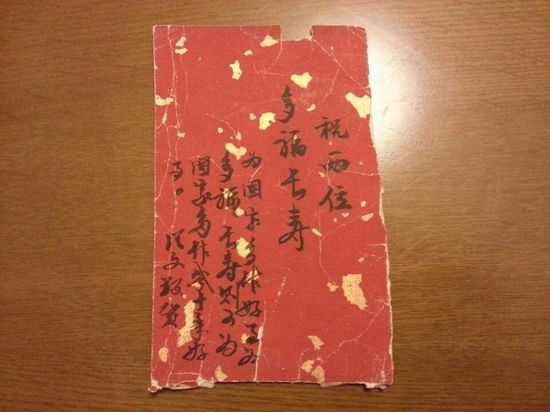 祝两位
多福长寿
为国家多作好事为
多福、长寿则可为
国家多作几十年好
事。 从文敬贺